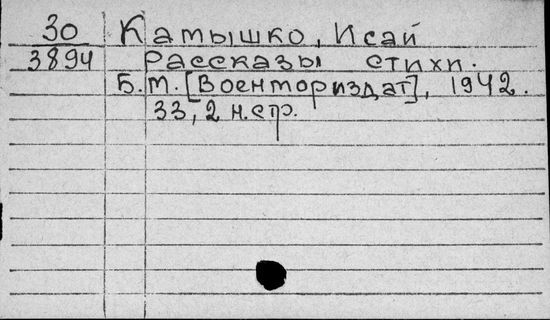 30 Катышко, Исай
3894 Рассказы стихи.
Б.м. [Военториздат], 1942.
33, 2 н.стр.